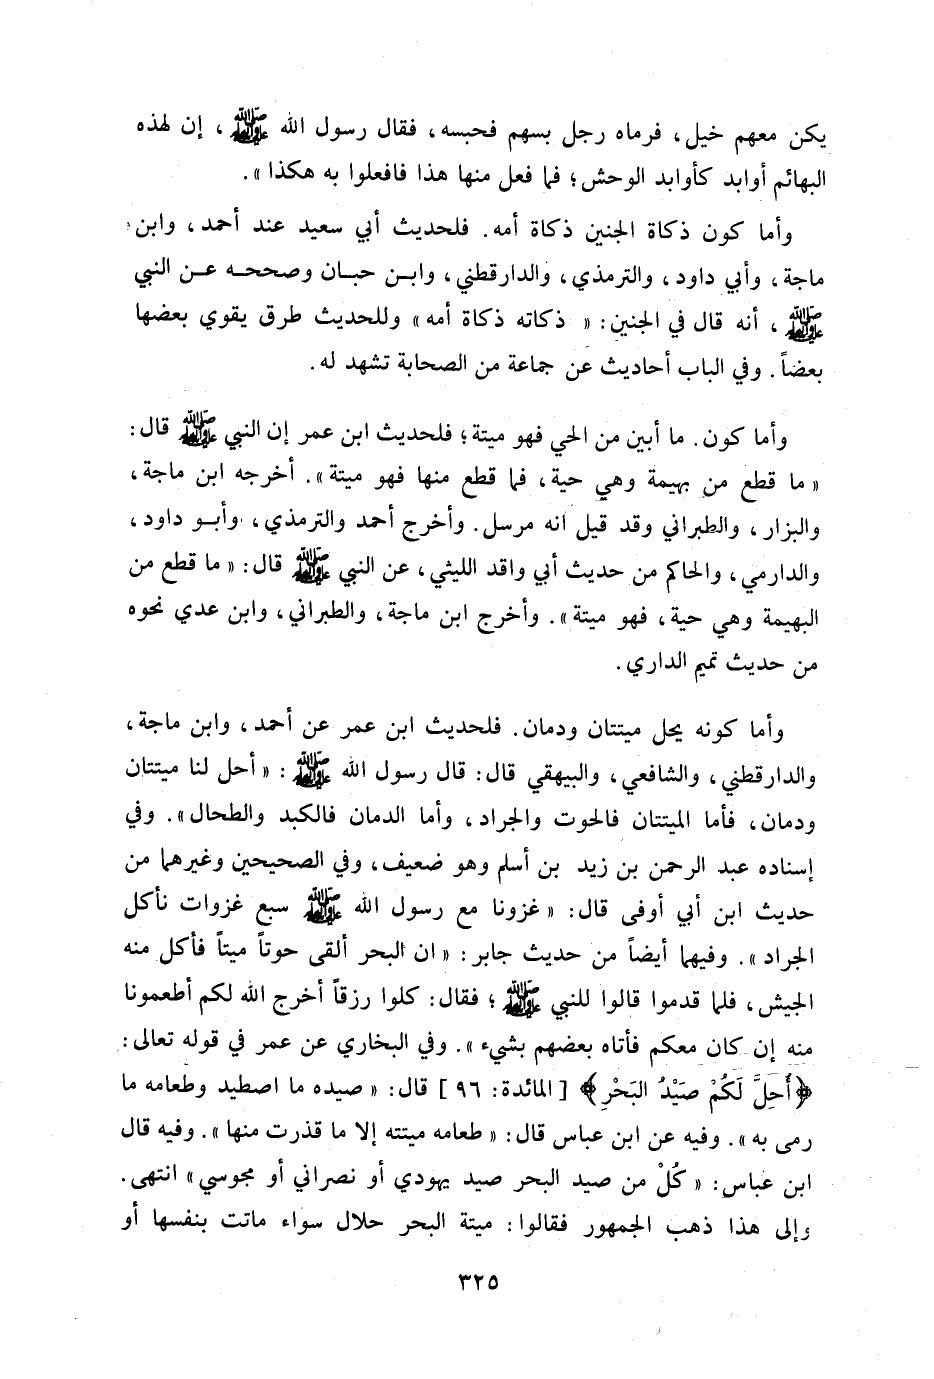 يكن معهم خيل، فرماه رجل بسهم فحبسه، فقال رسول الله ﷺ، إن لهذه
البهائم أوابد كأوابد الوحش؛ فما فعل منها هذا فافعلوا به هكذا».
وأما كون ذكاة الجنين ذكاة أمه. فلحديث أبي سعيد عند أحمد، وابن
ماجة، وأبي داود، والترمذي، والدارقطني، وابن حبان وصححه عن النبي
ﷺ، أنه قال في الجنين: «ذكاته ذكاة أمه» وللحديث طرق يقوي بعضها
بعضاً. وفي الباب أحاديث عن جماعة من الصحابة تشهد له.
وأما كون. ما أبين من الحي فهو ميتة؛ فلحديث ابن عمر إن النبي ﷺ قال:
«ما قطع من بهيمة وهي حية، فما قطع منها فهو ميتة». أخرجه ابن ماجة،
والبزار، والطبراني وقد قيل انه مرسل. وأخرج أحمد والترمذي، وأبو داود،
والدارمي، والحاكم من حديث أبي واقد الليثي، عن النبي ﷺ قال: «ما قطع من
البهيمة وهي حية، فهو ميتة». وأخرج ابن ماجة، والطبراني، وابن عدي نحوه
من حديث تميم الداري.
وأما كونه يحل ميتتان ودمان. فلحديث ابن عمر عن أحمد، وابن ماجة،
والدارقطني، والشافعي، والبيهقي قال: قال رسول الله ﷺ: «أحل لنا ميتتان
ودمان، فأما الميتتان فالحوت والجراد، وأما الدمان فالكبد والطحال». وفي
إسناده عبد الرحمن بن زيد بن أسلم وهو ضعيف، وفي الصحيحين وغيرهما من
حديث ابن أبي أوفى قال: «غزونا مع رسول الله ﷺ سبع غزوات نأكل
الجراد». وفيهما أيضاً من حديث جابر: «ان البحر ألقى حوتاً ميتاً فأكل منه
الجيش، فلما قدموا قالوا للنبي ﷺ؛ فقال: كلوا رزقاً أخرج الله لكم أطعمونا
منه إن كان معكم فأتاه بعضهم بشيء». وفي البخاري عن عمر في قوله تعالى:
﴿أُحِلَّ لَكُمْ صَيْدُ البَحْرِ﴾ [المائدة: ٩٦] قال: «صيده ما اصطيد وطعامه ما
رمى به». وفيه عن ابن عباس قال: «طعامه ميتته إلا ما قذرت منها». وفيه قال
ابن عباس: «كُلْ من صيد البحر صيد يهودي أو نصراني أو مجوسي» انتهى.
وإلى هذا ذهب الجمهور فقالوا: ميتة البحر حلال سواء ماتت بنفسها أو
٣٢٥